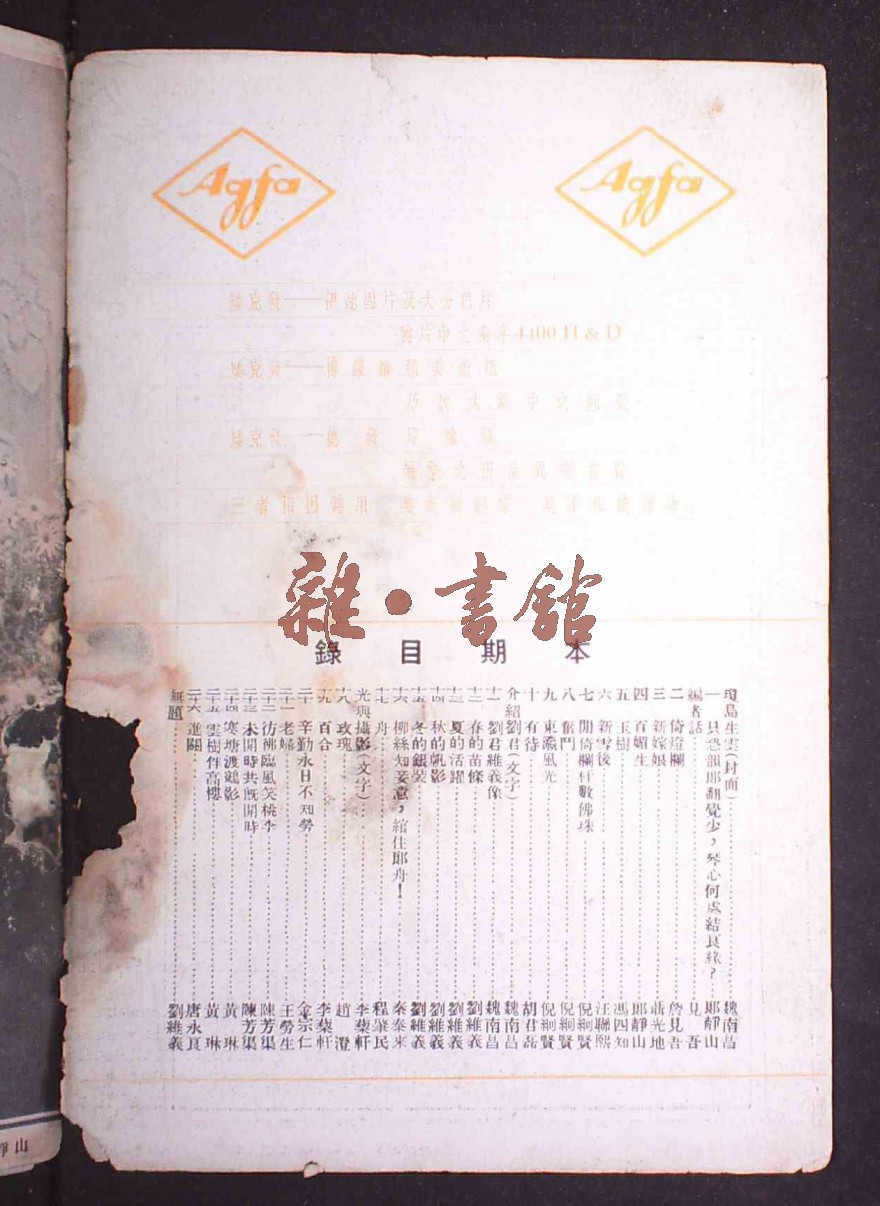 Agfa
Agfa
矮克發——
片中之
4400 H & D
矮克發——
矮克發——
三者相因爲用
雜·書館
本期目錄
瓊島生雲(封面)……魏南昌
一 只恐韻郎翻覺少,琴心何處結良緣?……郎靜山
編者話……見吾
二 倚燈欄……詹見吾
三 新嫁娘……聶光地
四 百媚生……郎靜山
五 玉樹……馮四知
六 新雪後……汪聯熙
七 閒倚欄杆數佛珠……倪絅賢
八 奮鬥……倪絅賢
九 東瀛風光……倪絅賢
十 有待……胡君磊
介紹劉君(文字)……魏南昌
十一 劉君維義像……魏南昌
十二 春的苗條……劉維義
十三 夏的活躍……劉維義
十四 秋的帆影……劉維義
十五 冬的銀裝……劉維義
十六 柳絲知妾意,綰住郎舟!……秦泰來
十七 舟……程肇民
光與攝影(文字)……李蘂軒
十八 玫瑰……趙澄
十九 百合……李蘂軒
二十 辛勤永日不知勞……金宗仁
二十一 老婦……王勞生
二十二 彷彿臨風笑桃李……陳芳渠
二十三 未開時共旣開時……陳芳渠
二十四 寒塘渡鶴影……黃琳
二十五 雲樹伴高樓……黃琳
二十六 進關……唐永良
無題……劉維義